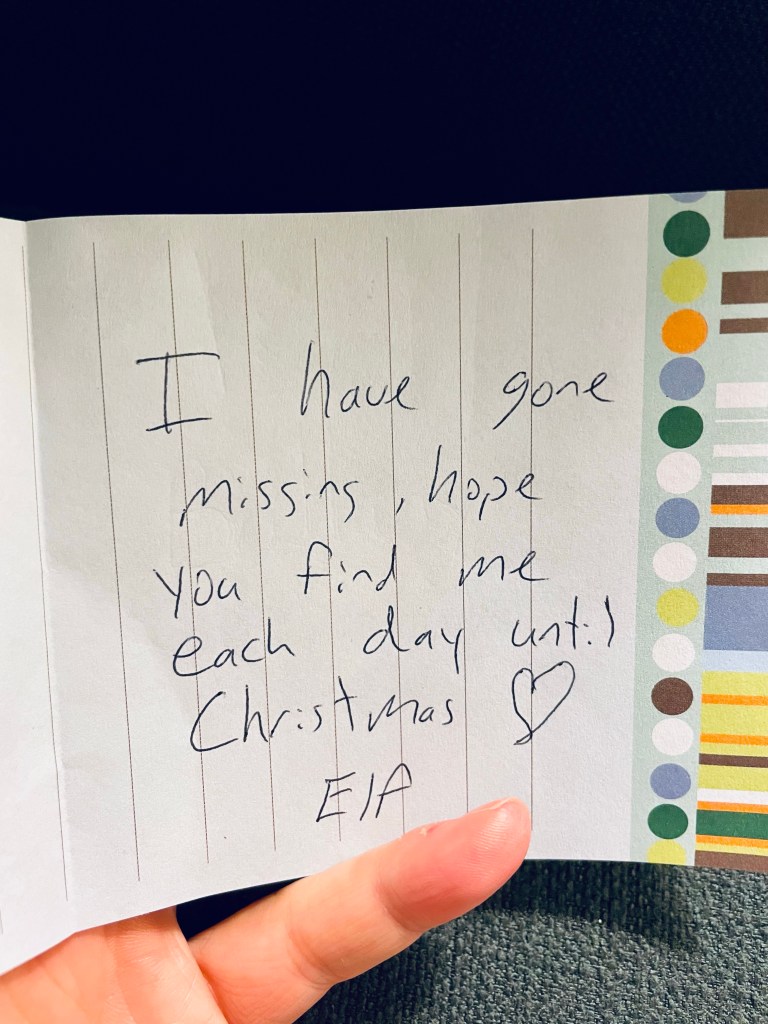 I have gone
missing, hope
you find me
each day until
Christmas ♡
Elf